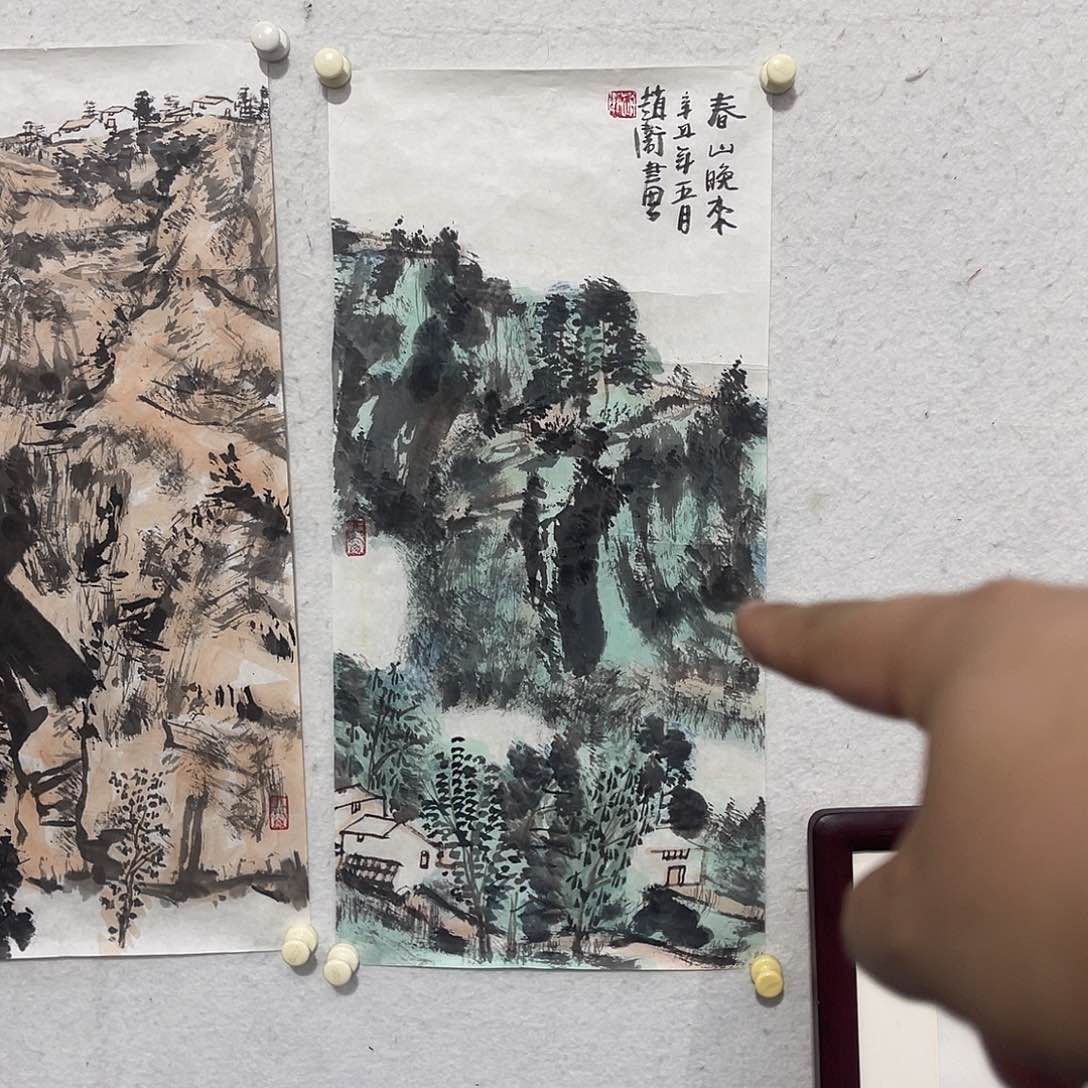 春山晚来
辛丑年五月
趙衛畫